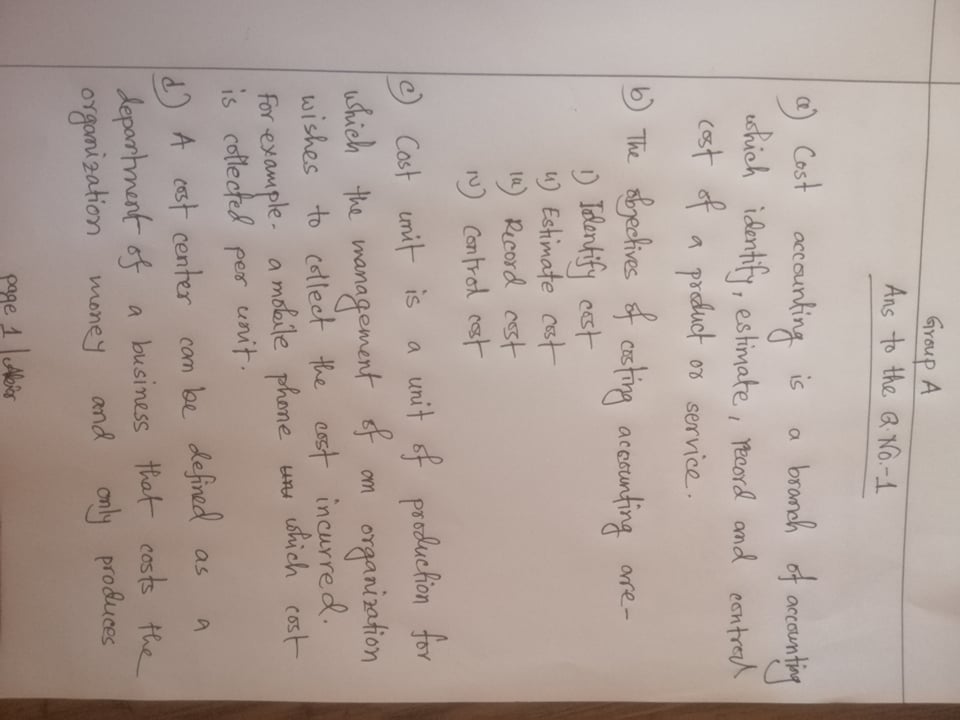 Group A
Ans to the Q.No.-1
a) Cost accounting is a branch of accounting
which identify, estimate, record and control
cost of a product or service.
b) The objectives of costing accounting are-
i) Identify cost
ii) Estimate cost
iii) Record cost
iv) Control cost
c) Cost unit is a unit of production for
which the management of an organization
wishes to collect the cost incurred.
For example- a mobile phone which cost
is collected per unit.
d) A cost center can be defined as a
department of a business that costs the
organization money and only produces
page 1 |